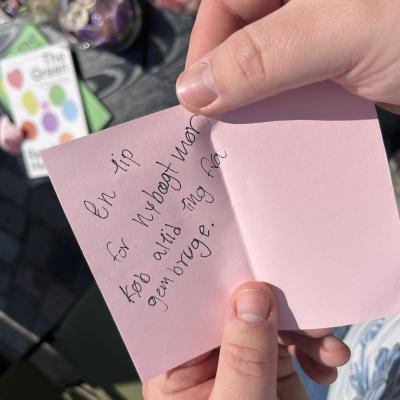 The
Green
En tip
for nybagt mor
Køb altid ting fra
gembruge.